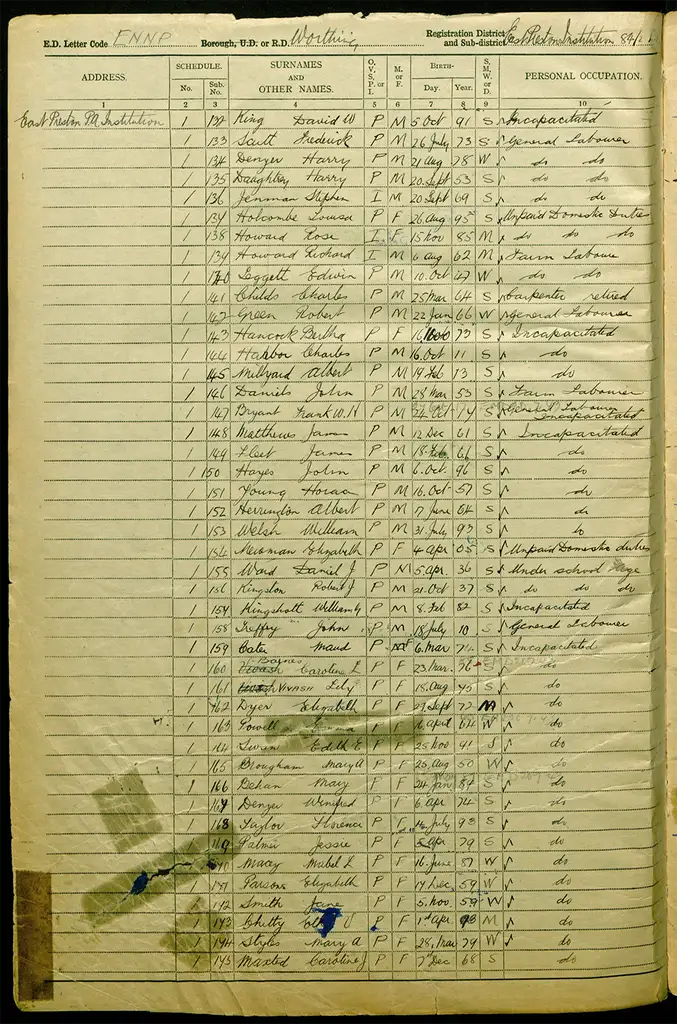 E.D. Letter Code ENNP Borough, U.D. or R.D. Worthing Registration District and Sub-district East Preston Institution 84/
ADDRESS. SCHEDULE. No. Sub. No. SURNAMES AND OTHER NAMES. O, V, S, P, or I. M. or F. BIRTH- Day. Year. S, M, W, or D. PERSONAL OCCUPATION.
1 2 3 4 5 6 7 8 9 10
East Preston PA Institution 1 132 King David W P M 5 Oct 91 S Incapacitated
1 133 Scutt Frederick P M 26 July 73 S General Labourer
1 134 Denyer Harry P M 21 Aug 78 W do do
1 135 Daughtry Harry P M 20 Sept 53 S do do
1 136 Jenman Stephen I M 20 Sept 69 S do do
1 137 Holcombe Louisa P F 26 Aug 93 S Unpaid Domestic Duties
1 138 Howard Rose I F 15 Nov 85 M do do do
1 139 Howard Richard I M 6 Aug 62 M Farm Laboure
1 140 Leggett Edwin P M 10 Oct 47 W do do
1 141 Childs Charles P M 25 Mar 64 S Carpenter retired
1 142 Green Robert P M 22 Jan 66 W General Labourer
1 143 Hancock Bertha P F 16 73 S Incapacitated
1 144 Harbor Charles P M 16 Oct 11 S do
1 145 Millyard Albert P M 19 Feb 13 S do
1 146 Daniels John P M 28 Mar 53 S Farm Labourer
1 147 Bryant Frank W. H P M 24 Oct 74 S General Labourer Incapacitated
1 148 Matthews James P M 12 Dec 61 S Incapacitated
1 149 Fleet James P M 18 Feb 66 S do
1 150 Hayes John P M 6 Oct 96 S do
1 151 Young Horace P M 16 Oct 57 S do
1 152 Herrington Albert P M 17 June 64 S do
1 153 Welsh William P M 31 July 93 S do
1 154 Newman Elizabeth P F 4 Apr 05 S Unpaid Domestic duties
1 155 Ward Daniel J P M 5 Apr 36 S Under school age
1 156 Kingston Robert J P M 21 Oct 37 S do do do
1 157 Kingshott William G P M 8 Feb 82 S Incapacitated
1 158 Treffry John P M 18 July 10 S General Labourer
1 159 Cater Maud P F 6 Mar S Incapacitated
Baines
1 160 Caroline L P F 23 Mar 76 S do
1 161 VIVASH Lily P F 18 Aug 95 S do
1 162 Dyer Elizabeth P F 27 Sept 72 M do
1 163 Powell Emma P F 6 April 64 W do
1 164 Swan Edith E P F 25 Nov 91 S do
1 165 Brougham Mary A P F 25 Aug 50 W do
1 166 Behan Mary F F 24 Jan 84 S do
1 167 Denyer Winifred P F 6 Apr 74 S do
1 168 Taylor Florence P F July 98 S do
1 169 Palmer Jessie P F 5 Apr 79 S do
170 Macey Mabel L P F 16 June 87 W do
1 171 Parsons Elizabeth P F 14 Dec 59 W do
1 172 Smith Jane P F 5 Nov 59 W do
1 173 Chitty P F 1st Apr 98 M do
1 174 Styles Mary A P F 28 Mar 79 W do
1 175 Maxted Caroline J P F 7th Dec 68 S do